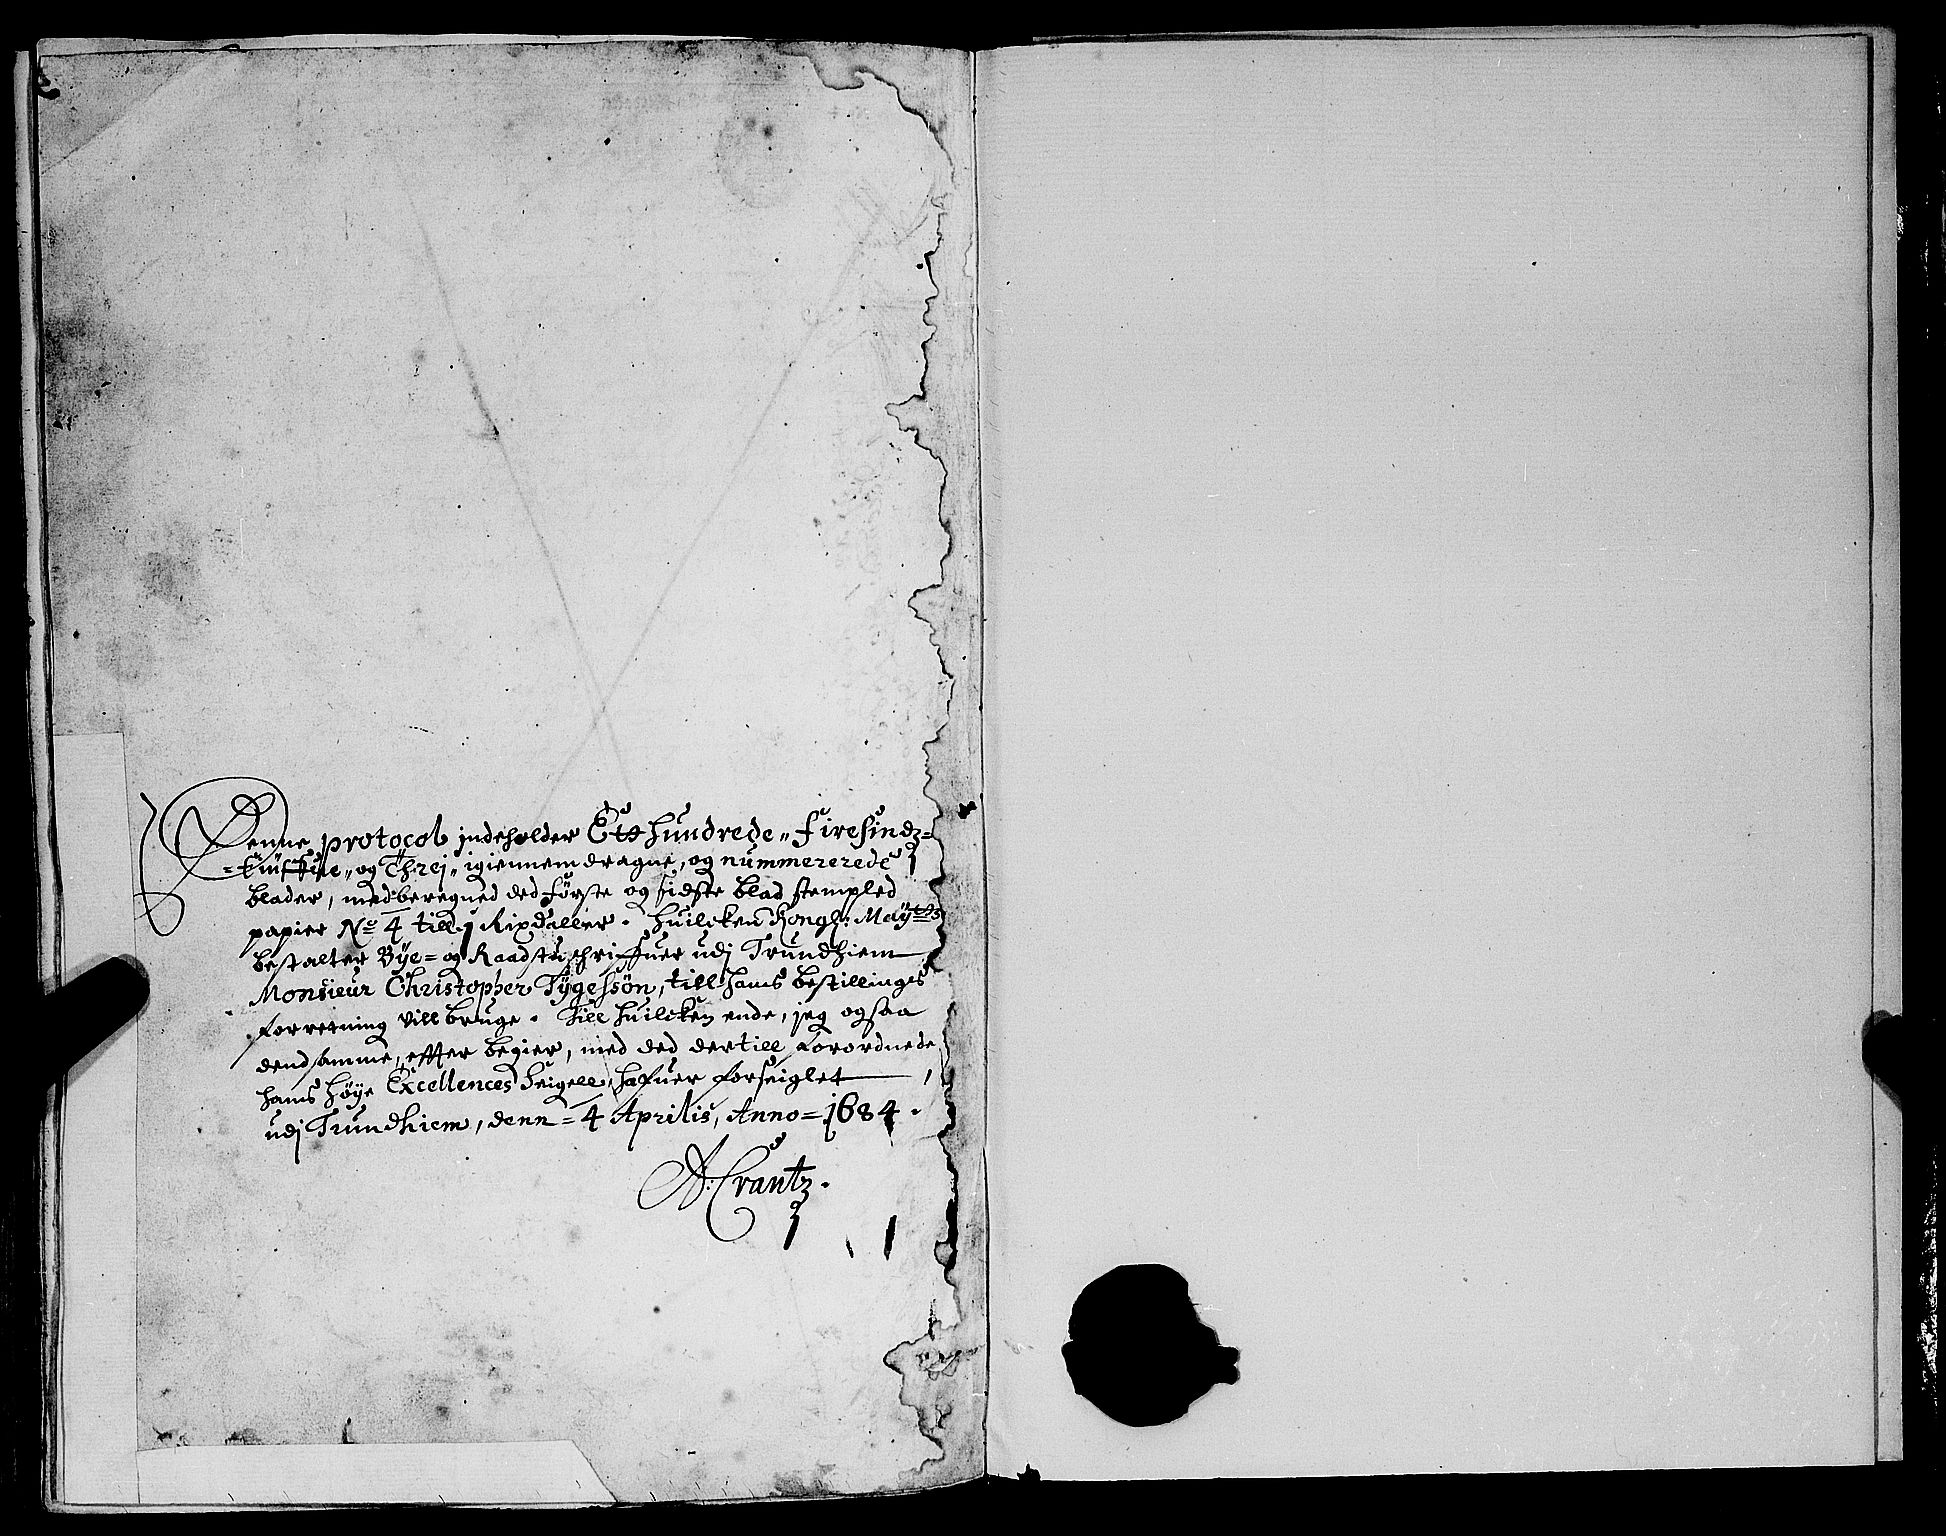 Denne protocol indeholder Ett hundrede„ firesinds=
=tiuffue„ og Threj„ igiennemdragne, og nummererede
blader, medberegned ded første og sidste blad stempled
papier No 4 till 1 Rixdaller. huilcken Kongl: Mayts
bestalter Bye= og Raadstuschriffuer udj Trundhiem
Monsieur Christopher Tygessøn, till hans bestillinges
forretning vill bruge. Till huilcken ende, jeg ogsaa
dend samme, effter begier, med ded dertill forordnede
hans høye Excellences Seigell, hafuer forseiglet
udj Trundhiem, denn = 4 Aprilis, Anno = 1684.
A: Crantz.